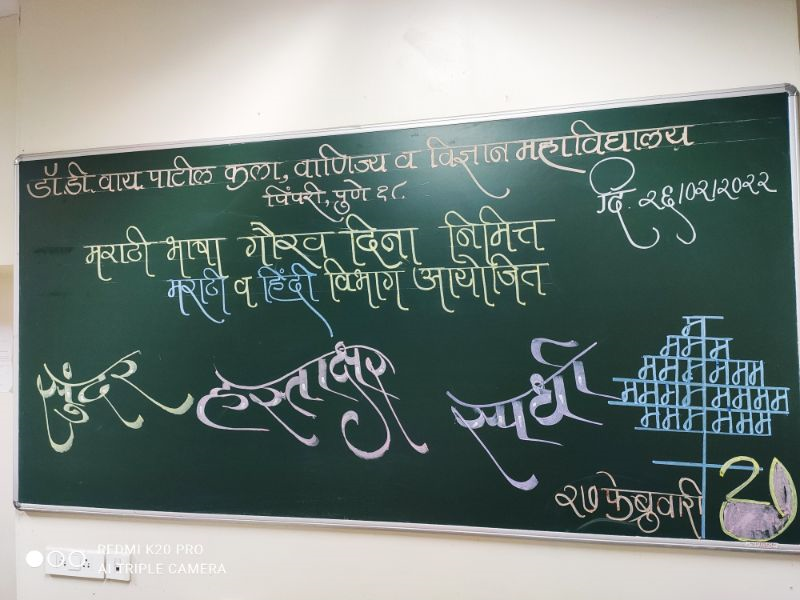 डॉ.डी. वाय. पाटील कला, वाणिज्य व विज्ञान महाविद्यालय
पिंपरी, पुणे १८.
दि. २६/०२/२०२२
मराठी भाषा गौरव दिना निमित्त
मराठी व हिंदी विभाग आयोजित
सुंदर हस्ताक्षर स्पर्धा
म
म म म
म म म म म
म म म म म म म
म म म म म म म म म
म म म म म म म
२७ फेब्रुवारी
REDMI K20 PRO
AI TRIPLE CAMERA